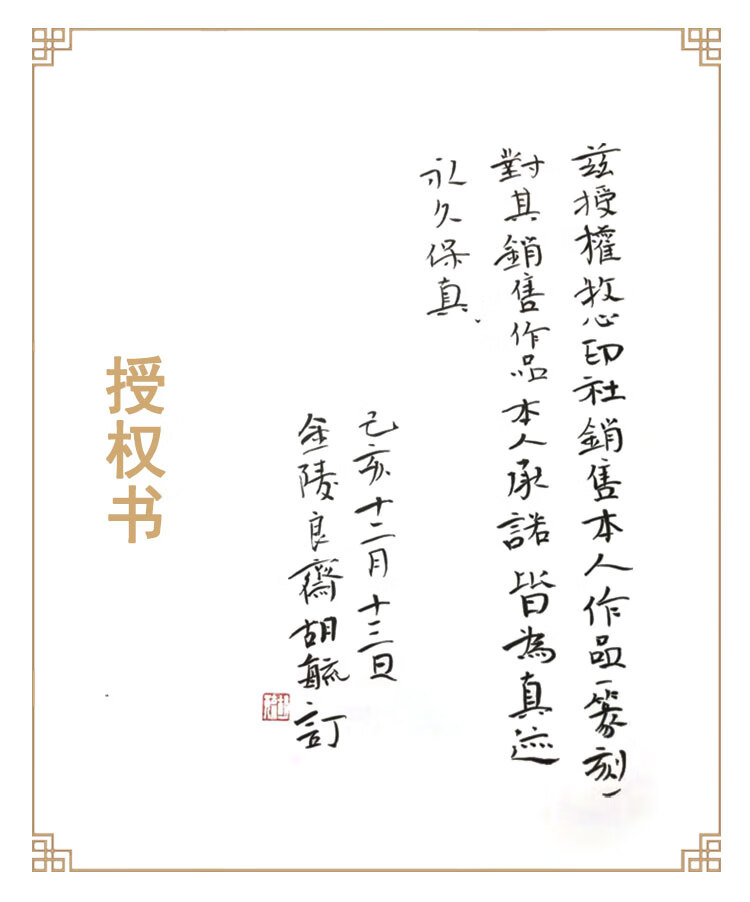 茲授權牧心印社銷售本人作品(篆刻)
對其銷售作品本人承諾皆為真迹
永久保真.
己亥十二月十三日
金陵良齋胡毓訂
授权书